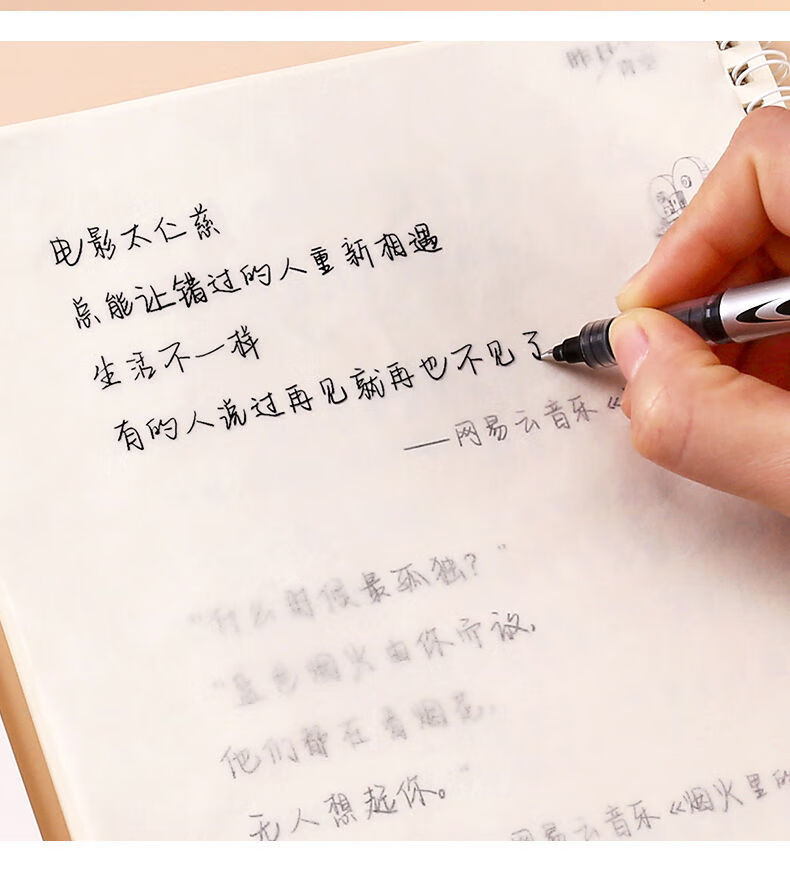 昨日
电影太仁慈
总能让错过的人重新相遇
生活不一样
有的人说过再见就再也不见了
——网易云音乐《
"什么时候最孤独？"
"蓝色烟火由你而设，
他们都在看烟花，
无人想起你。"
网易云音乐《烟火里的